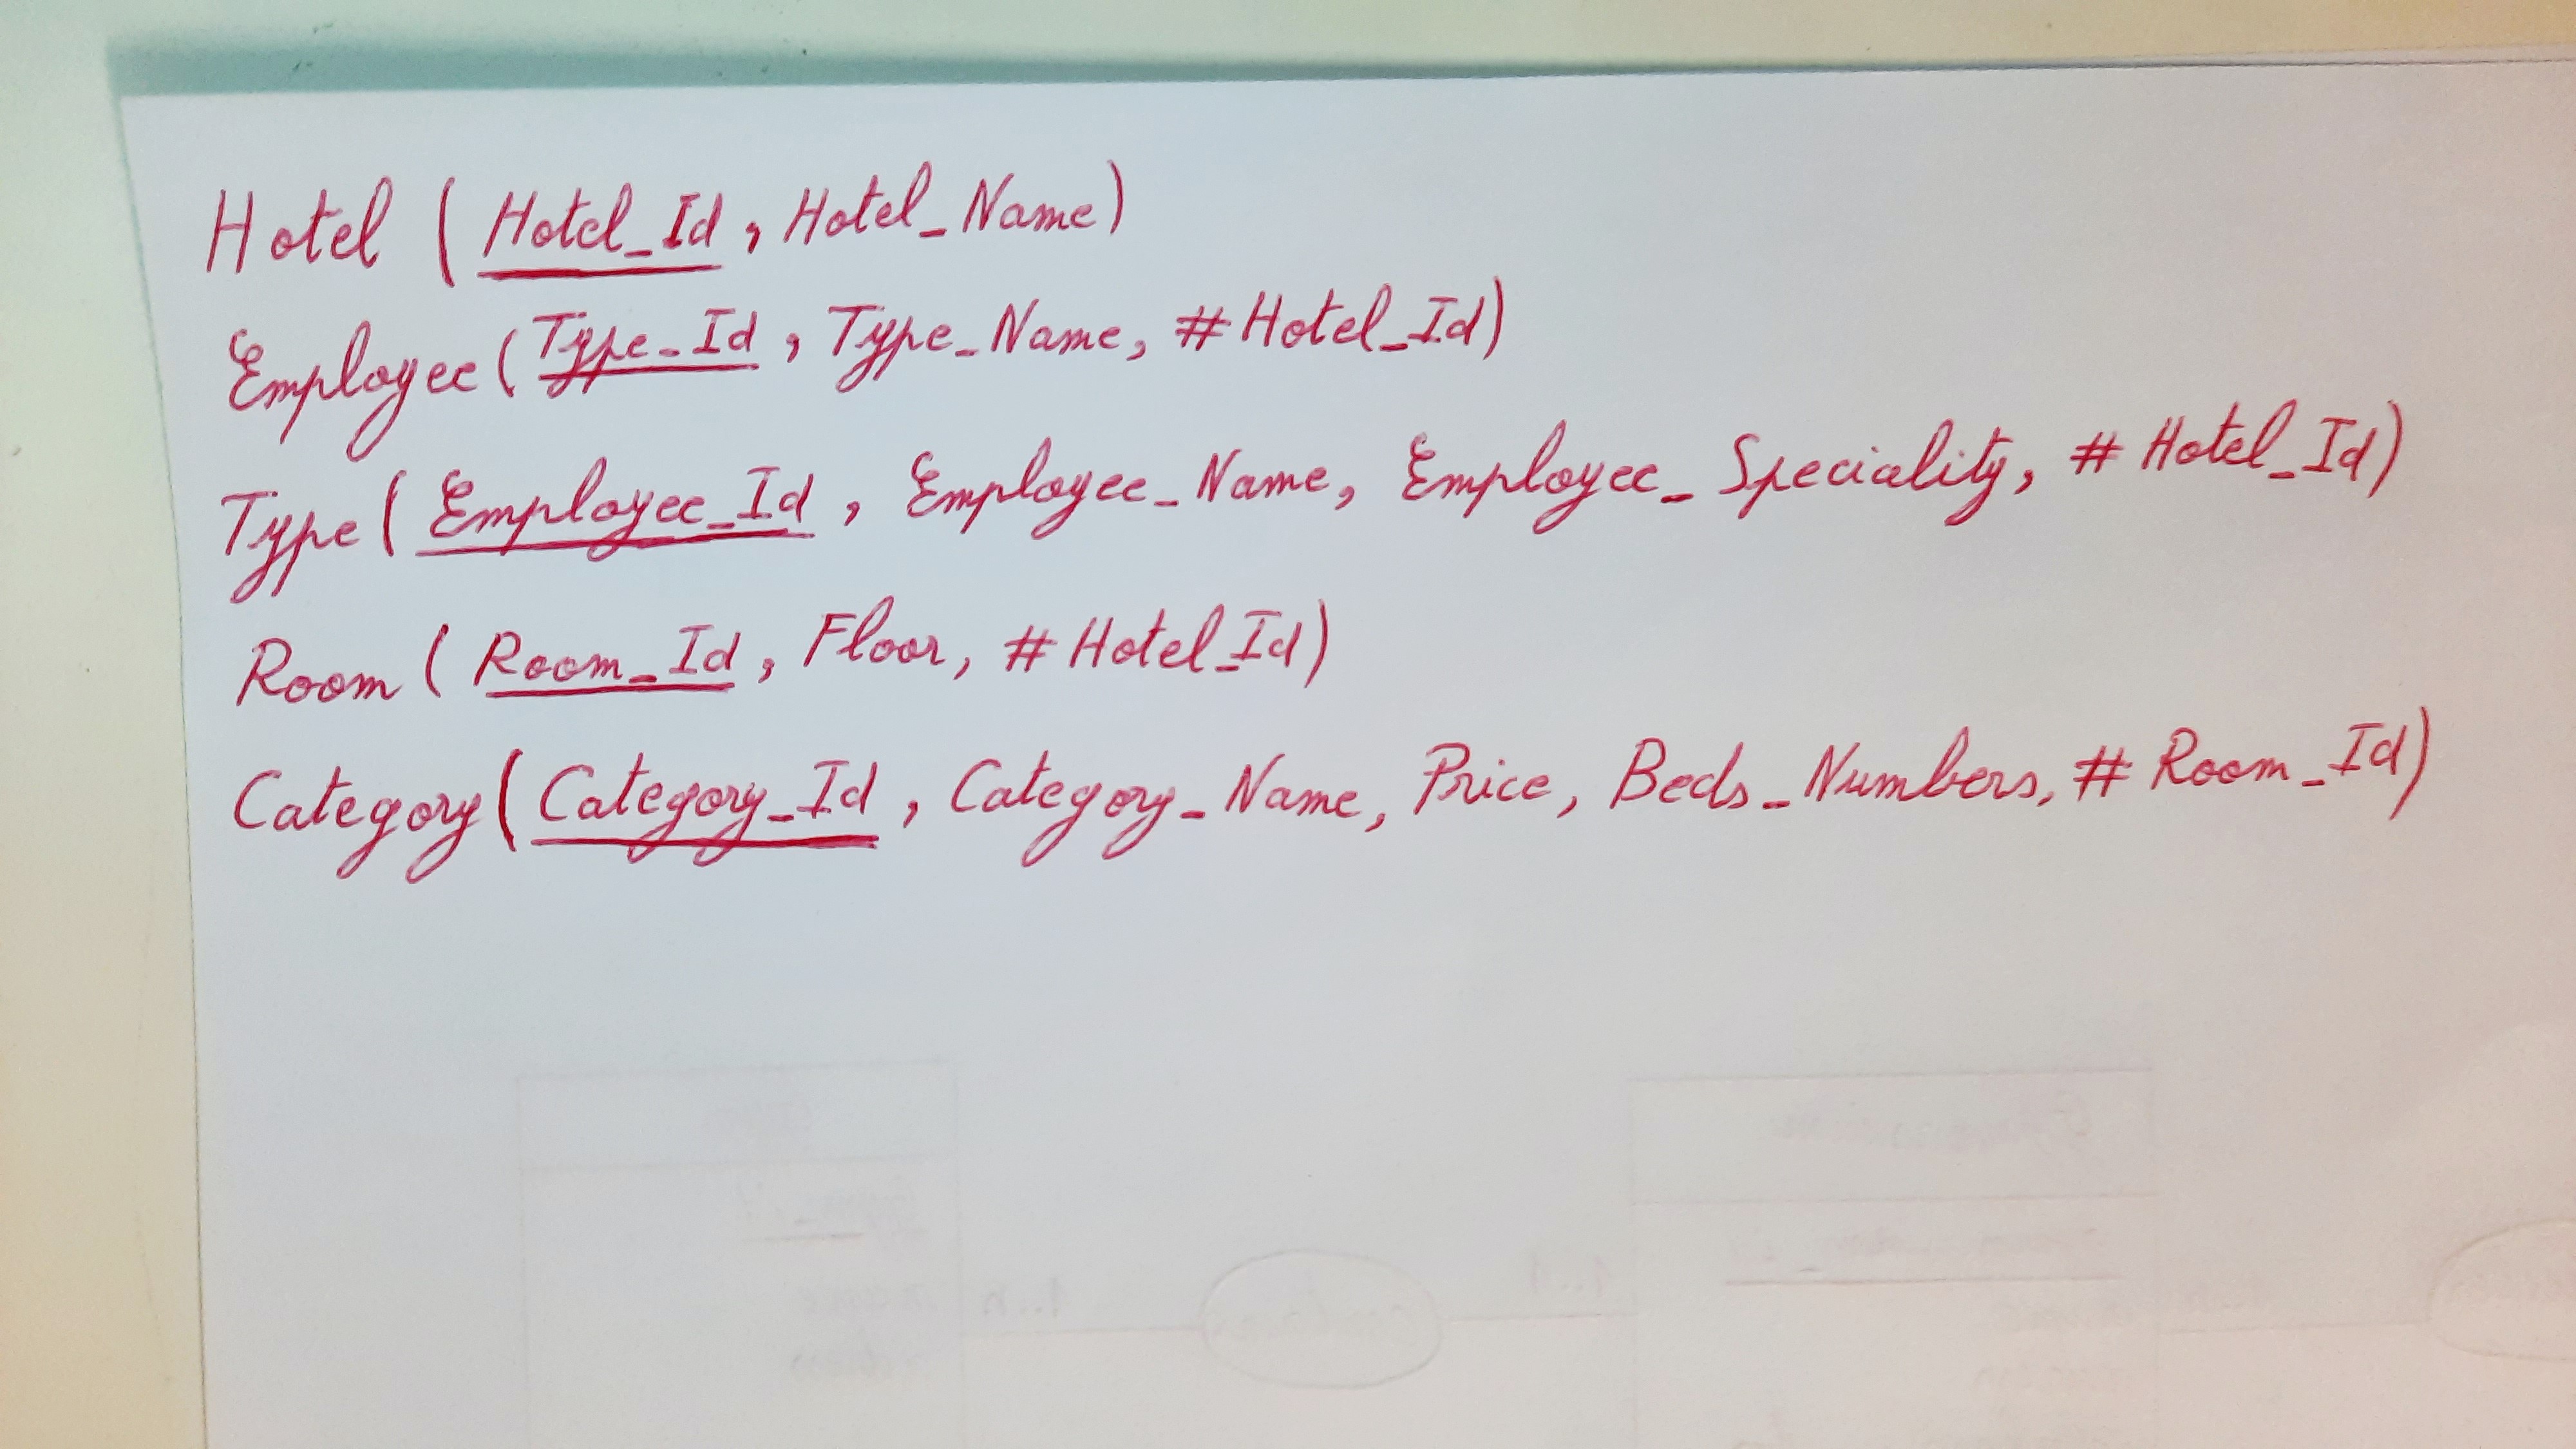 Hotel ( Hotel_Id, Hotel_Name)
Employee (Type_Id, Type_Name, #Hotel_Id)
Type ( Employee_Id, Employee_Name, Employee_Speciality, #Hotel_Id)
Room ( Room_Id, Floor, #Hotel_Id)
Category ( Category_Id, Category_Name, Price, Beds_Numbers, #Room_Id)